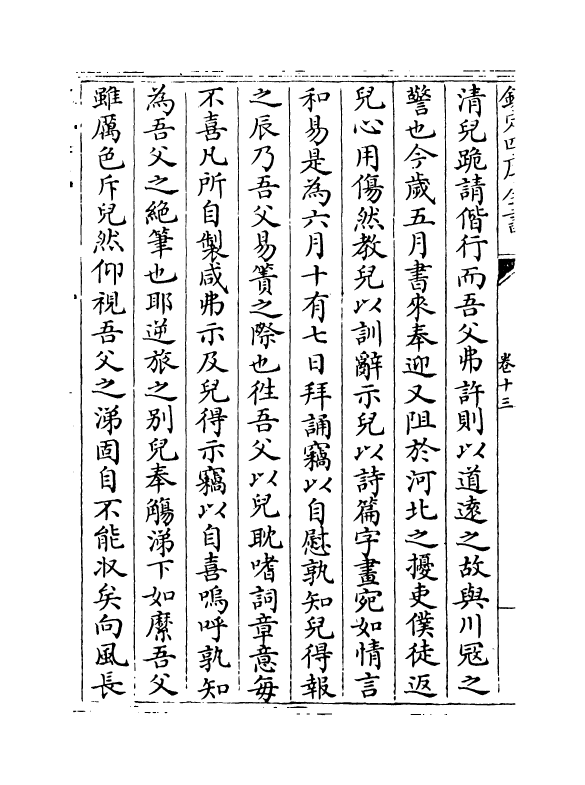 欽定四庫全書
卷十三
清兒跪請偕行而吾父弗許則以道遠之故與川寇之
警也今歲五月書來奉迎又阻於河北之擾吏僕徒返
兒心用傷然教兒以訓辭示兒以詩篇字畫宛如情言
和易是為六月十有七日拜誦竊以自慰孰知兒得報
之辰乃吾父易簀之際也徃吾父以兒耽嗜詞章意每
不喜凡所自製咸弗示及兒得示竊以自喜嗚呼孰知
為吾父之絶筆也耶逆旅之别兒奉觴涕下如縻吾父
雖厲色斥兒然仰視吾父之涕固自不能收矣向風長